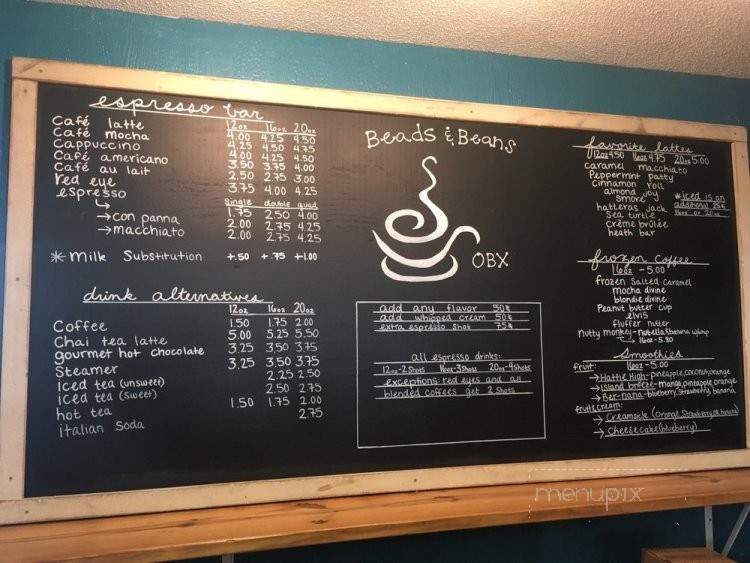 espresso bar
12oz 16oz 20oz
Café latte 4.00 4.25 4.50
Café mocha 4.25 4.50 4.75
Cappuccino 4.00 4.25 4.50
Café americano 3.50 3.75 4.00
Café au lait 2.50 2.75 3.00
red eye 3.75 4.00 4.25
espresso single double quad
1.75 2.50 4.00
→con panna 2.00 2.75 4.25
→macchiato 2.00 2.75 4.25
*Milk Substitution +.50 +.75 +1.00
drink alternatives
12oz 16oz 20oz
Coffee 1.50 1.75 2.00
Chai tea latte 5.00 5.25 5.50
gourmet hot chocolate 3.25 3.50 3.75
Steamer 3.25 3.50 3.75
iced tea (unsweet) 2.25 2.50
iced tea (sweet) 2.50 2.75
hot tea 1.50 1.75 2.00
italian Soda 2.75
Beads & Beans
OBX
add any flavor 50¢
add whipped cream 50¢
extra espresso shot 75¢
all espresso drinks:
12oz-2shots 16oz-3shots 20oz-4shots
exceptions: red eyes and all
blended coffees get 2 shots
favorite lattes
12oz 4.50 16oz 4.75 20oz 5.00
caramel macchiato
Peppermint patty
cinnamon roll
almond joy
Smore
hatteras jack
Sea turtle
Crème brûlée
heath bar
*iced is an
additional 25¢
16oz or 20oz
frozen coffee
16oz - 5.00
frozen Salted Caramel
mocha divine
blondie divine
Peanut butter cup
elvis
fluffer nutter
nutty monkey-nutella, banana, whip
→16oz-5.50
Smoothies
fruit: 16oz - 5.00
→Hattie High-pineapple, coconut, orange
→island breeze-mango, pineapple, orange
→Ber-nana-blueberry, Strawberry, banana
fruit cream:
→Creamsicle (orange, Strawberry, banana)
→Cheesecake (blueberry)
menupix